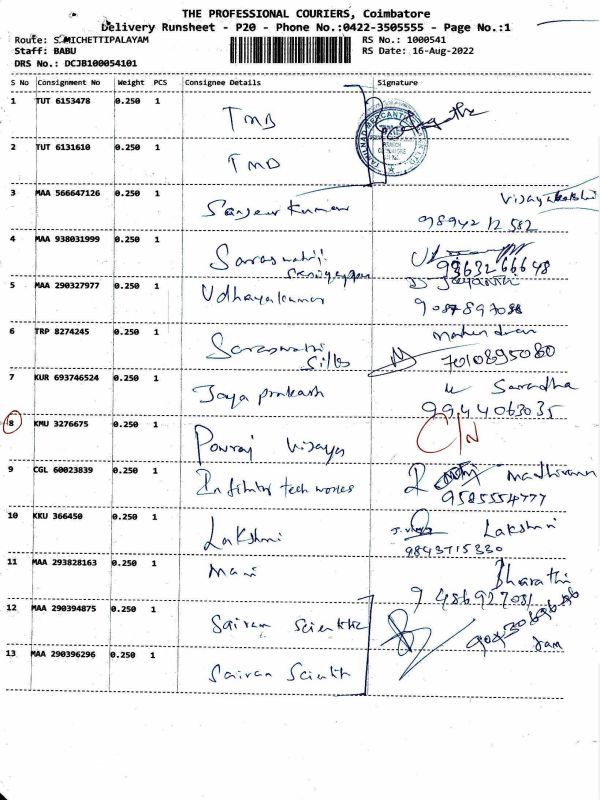 THE PROFESSIONAL COURIERS, Coimbatore
Delivery Runsheet - P20 - Phone No.:0422-3505555 - Page No.:1
Route: S.MICHETTIPALAYAM
RS No.: 1000541
Staff: BABU
RS Date: 16-Aug-2022
DRS No.: DCJB100054101
S No Consignment No Weight PCS Consignee Details Signature
1 TUT 6153478 0.250 1 TMB
2 TUT 6131610 0.250 1 TMB
3 MAA 566647126 0.250 1 Sanjeev Kumar
98942 12 582
4 MAA 938031999 0.250 1 Saraswathi
9363266648
5 MAA 290327977 0.250 1 Udhayakumar
D Jayanthi
6 TRP 8274245 0.250 1 Saraswathi
Silks
7010895080
7 KUR 693746524 0.250 1 Jaya prakash Saradha
9944063035
8 KMU 3276675 0.250 1 Ponraj Vijaya C/N
9 CGL 60023839 0.250 1 Infinity tech works
9585554777
10 KKU 366450 0.250 1 Lakshmi Lakshmi
9843715330
11 MAA 293828163 0.250 1 Mani Bharathi
9 486927081
12 MAA 290394875 0.250 1 Sairam
13 MAA 290396296 0.250 1 Sairam